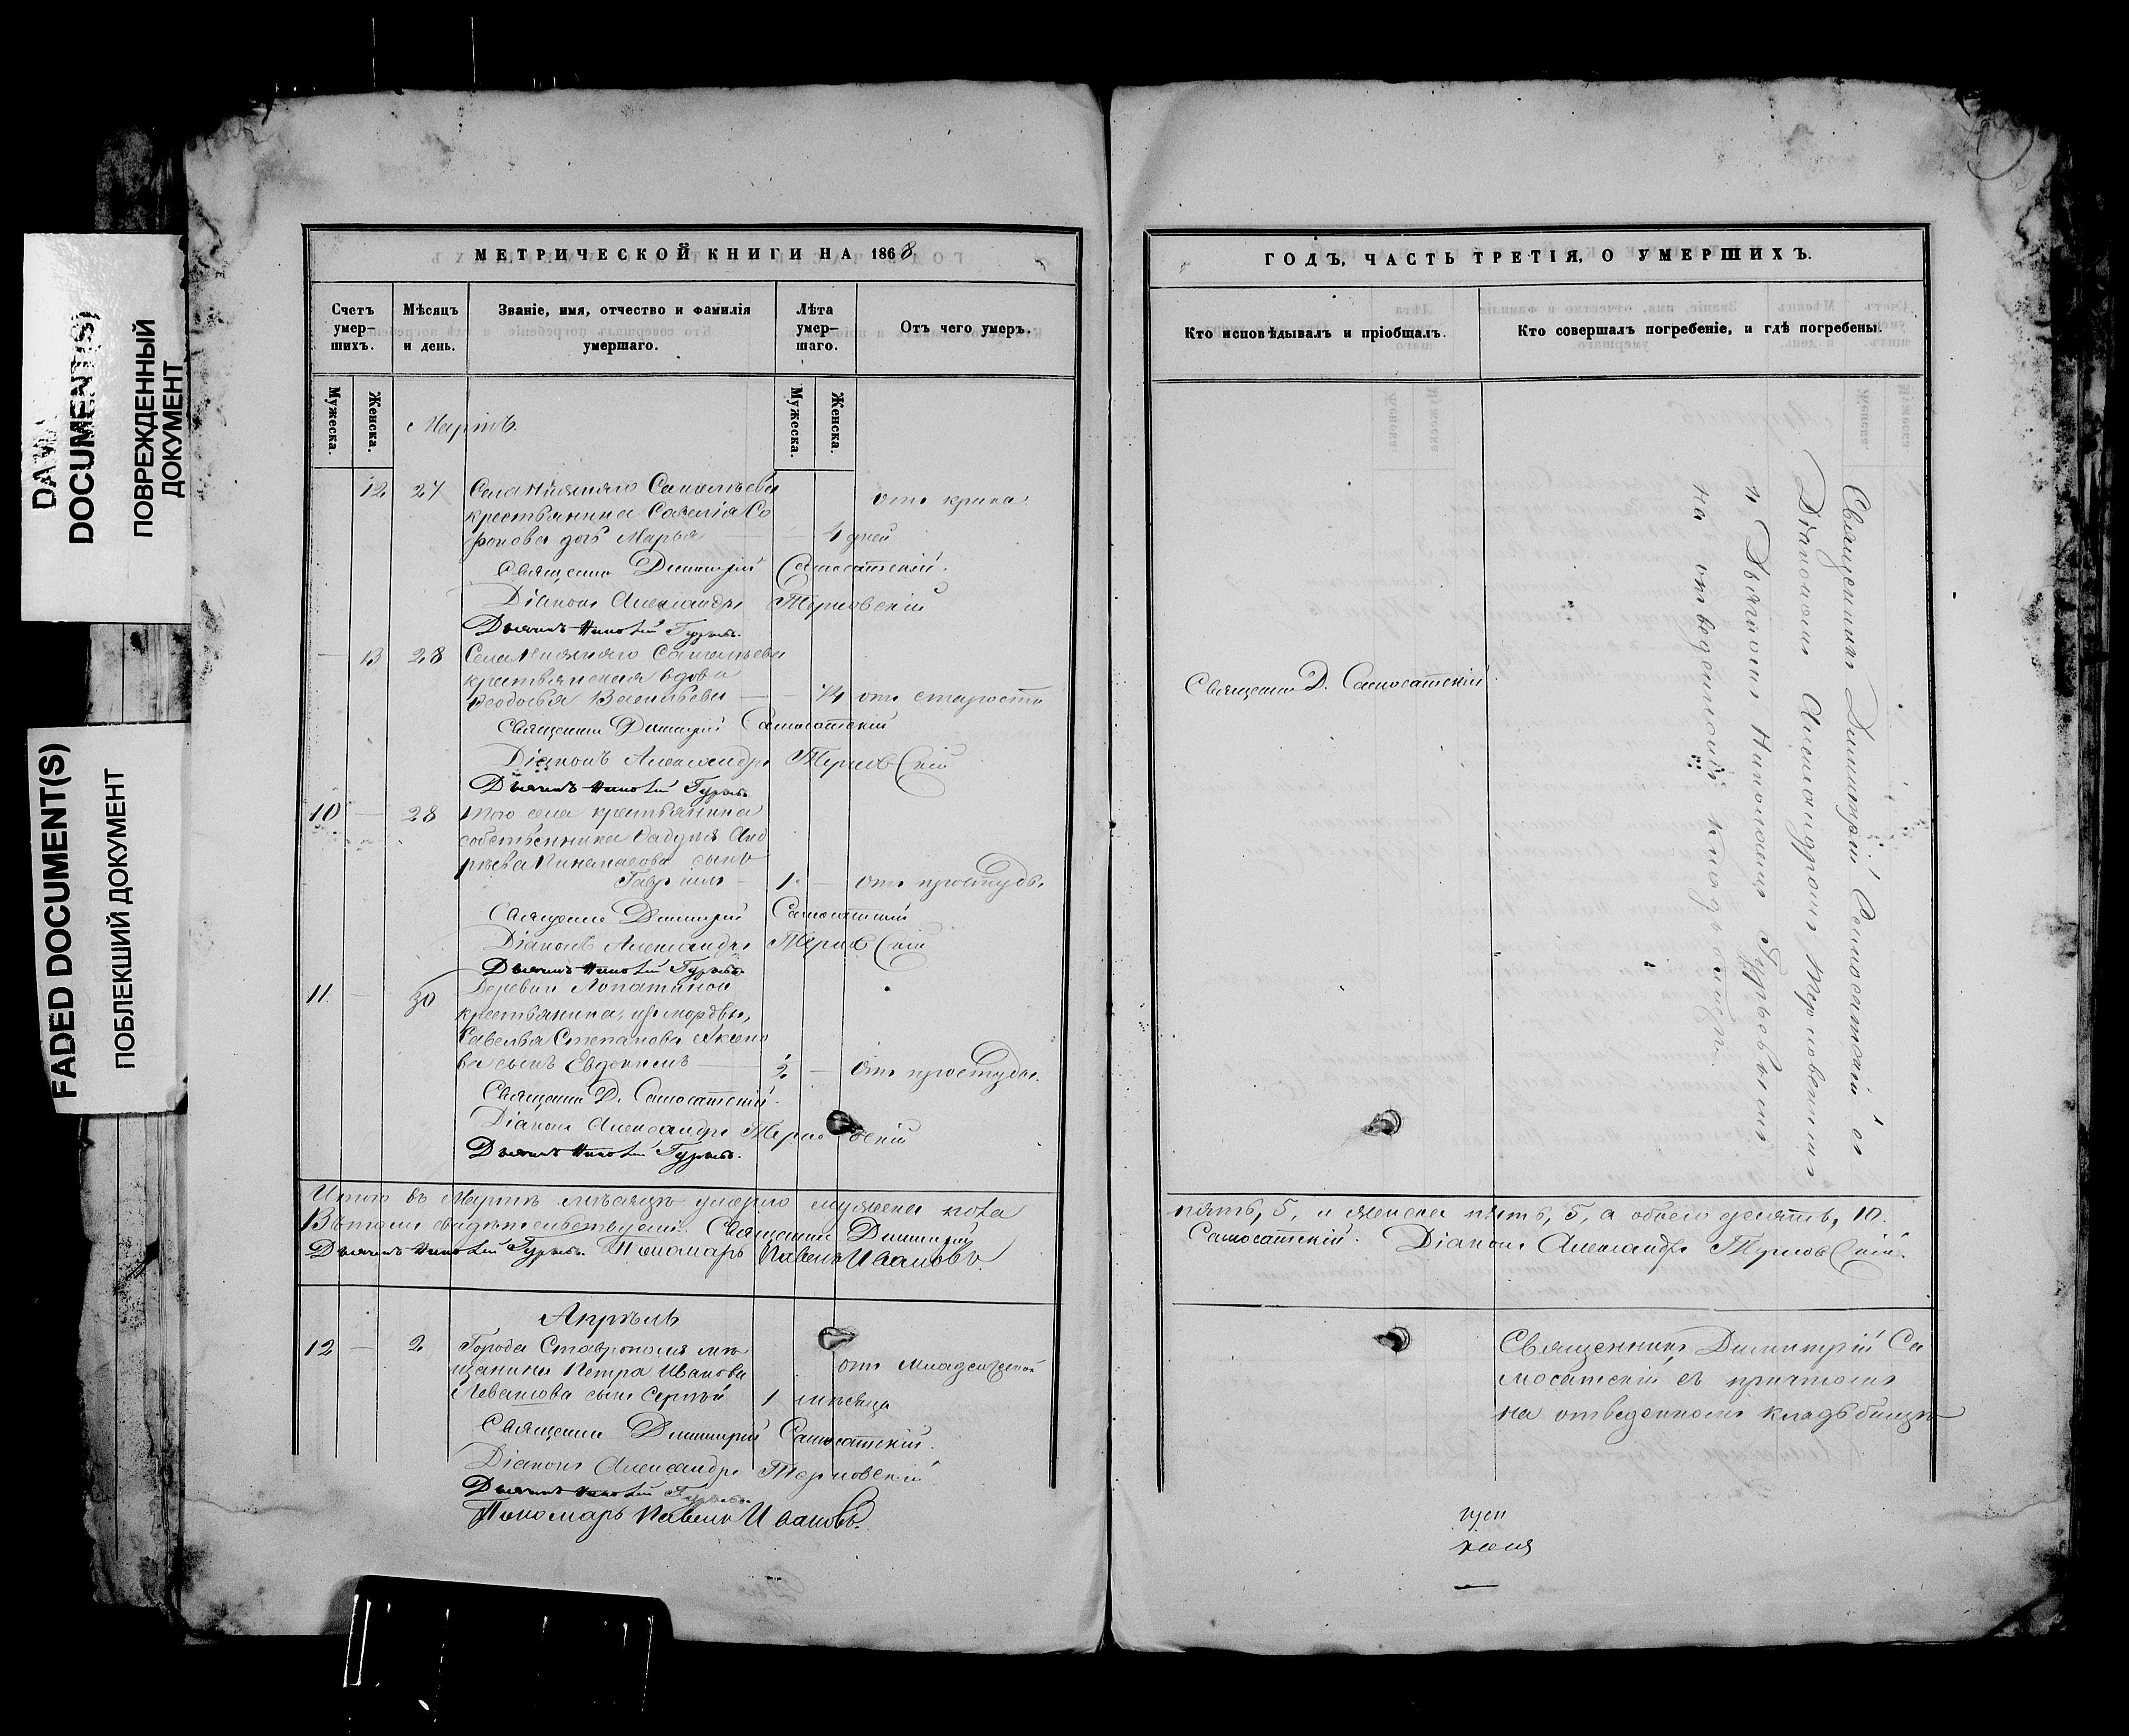 DOCUMENT(S)
ПОВРЕЖДЕННЫЙ
ДОКУМЕНТ
FADED DOCUMENT(S)
ПОБЛЕКШИЙ ДОКУМЕНТ
МЕТРИЧЕСКОЙ КНИГИ НА 1868
Счетъ умер-шихъ.
Мѣсяцъ и день.
Званіе, имя, отчество и фамилія умершаго.
Лѣта умер-шаго.
Отъ чего умеръ.
Мужеска.
Женска.
Мужеска.
Женска.
Мартъ.
12 27 Села
крестьянина Савелія Со
фонова дочь Марья 4 дней
отъ крика
Священникъ Димитрій Самосатскій.
Діаконъ Александръ Терновскій
Дьячекъ Николай Гурьевъ.
13 28 Села
крестьянская вдова
Ѳеодосья Васильева 74 отъ старости
Священникъ Димитрій Самосатскій
Діаконъ Александръ Терновскій
Дьячекъ Николай Гурьевъ.
10 28 того села крестьянина
собственника Анд
рѣева сынъ
Гавріилъ 1 отъ простуды.
Священникъ Димитрій Самосатскій
Діаконъ Александръ Терновскій
Дьячекъ Николай Гурьевъ.
11 30 Деревни Лопатиной
крестьянина, изъ мордвы,
Савелья Степанова Аксено
ва сынъ Евдокимъ ½ отъ простуды.
Священникъ Д. Самосатскій.
Діаконъ Александръ Терновскій
Дьячекъ Николай Гурьевъ.
Итого въ Мартѣ мѣсяцѣ умерло мужеска пола
Въ томъ свидѣтельствуемъ: Священникъ Димитрій
Дьячекъ Николай Гурьевъ. Пономарь Павелъ Ивановъ.
Апрѣль
12 2 Города Ставрополя мѣ
щанина Петра Иванова
Левашова сынъ Сергѣй 1 мѣсяца
отъ младенческой
Священникъ Димитрій Самосатскій.
Діаконъ Александръ Терновскій
Дьячекъ Николай Гурьевъ.
Пономарь Павелъ Ивановъ.
ГОДЪ, ЧАСТЬ ТРЕТІЯ, О УМЕРШИХЪ.
Кто исповѣдывалъ и пріобщалъ.
Кто совершалъ погребеніе, и гдѣ погребены.
Священникъ Д. Самосатскій
Священникъ Димитрій Самосатскій съ
Діакономъ Александромъ Терновскимъ
и Дьячкомъ Николаемъ Гурьевымъ
на отведенномъ кладбищѣ.
пять, 5, и женска пять, 5, а обоего десять, 10.
Самосатскій. Діаконъ Александръ Терновскій.
Священникъ Димитрій Са
мосатскій съ причтомъ
на отведенномъ кладбищѣ